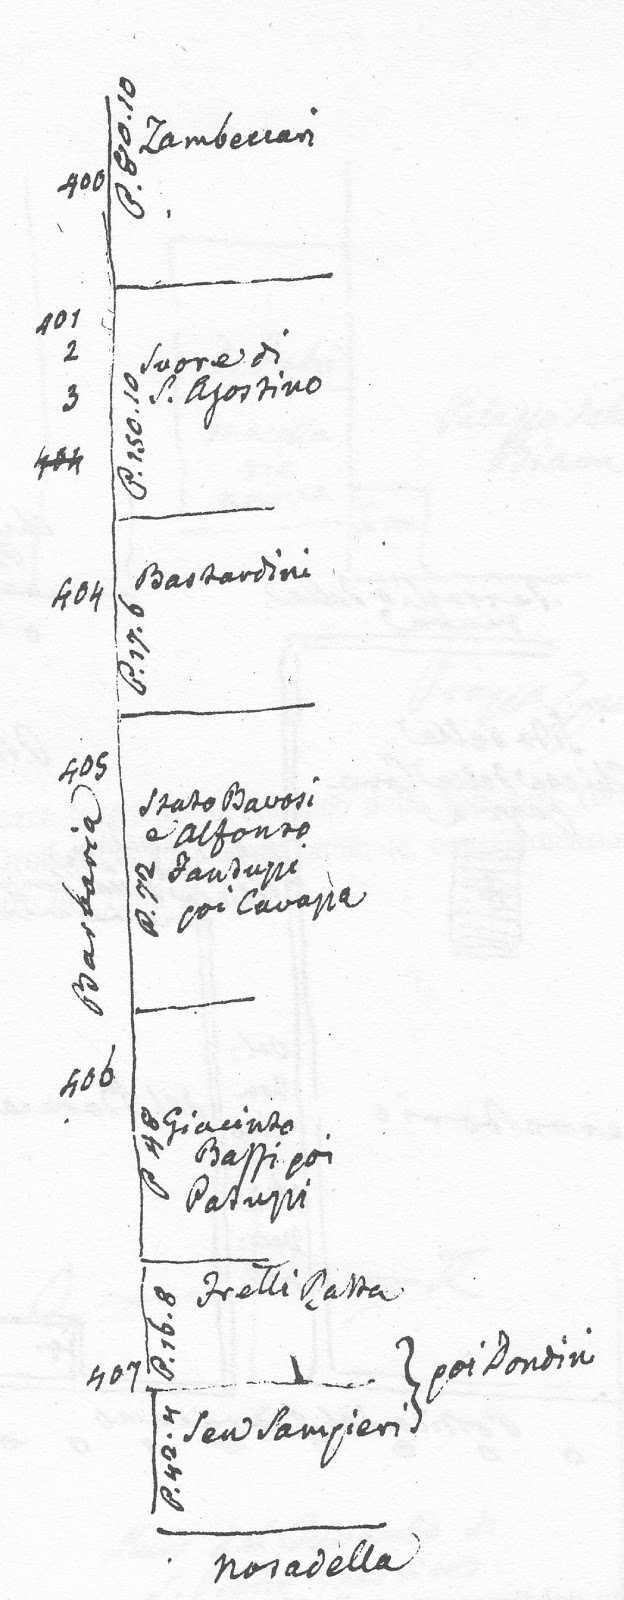 400
P. 80.10
Zambeccari
401
2
3
404
Suore di
S. Agostino
P. 150.10
404
Bastardini
P. 17.6
405
Barbaria
Stato Bavosi
e Alfonso
Fantuzzi
poi Cavazza
P. 72
406
Giacinto
Baffi poi
Patuzzi
P 48
Frelli Ratta
P. 16.8
407
poi Dondini
Sen Sampieri
P. 42.4
Nosadella